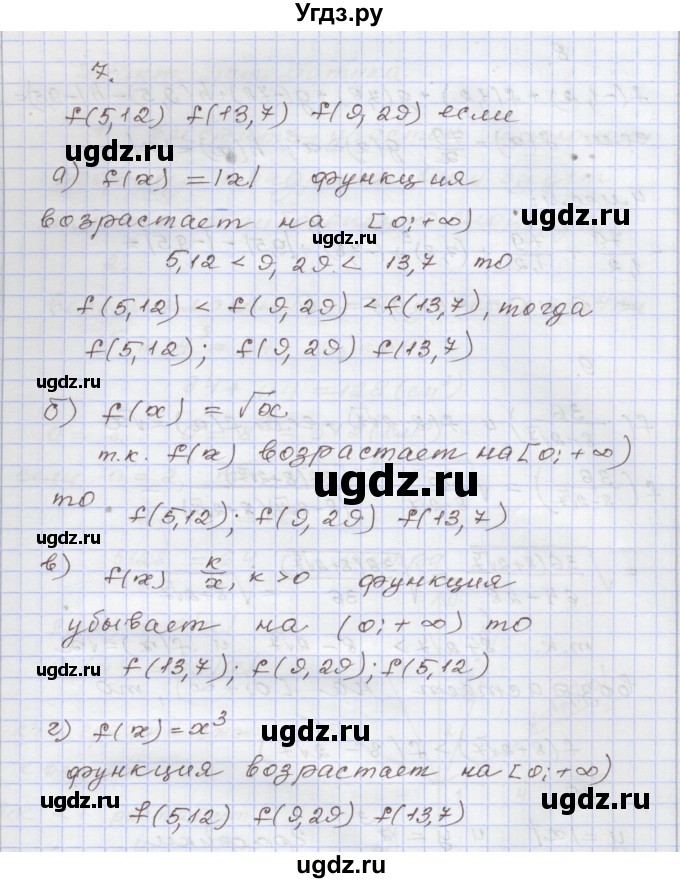 Угдз.ру
7.
f(5,12) f(13,7) f(9,29) если
ugdz.ru
а) f(x) = |x| функция
возрастает на [0;+∞)
ugdz.ru
ugdz.ru
5,12 < 9,29 < 13,7 то
f(5,12) < f(9,29) < f(13,7), тогда
f(5,12); f(9,29) f(13,7)
ugdz.ru
ugdz.ru
б) f(x) = √x.
т.к. f(x) возрастает на [0;+∞)
ugdz.ru
то f(5,12); f(9,29) f(13,7)
ugdz.ru
в) f(x) k/x, k>0 функция
убывает на (0;+∞) то
f(13,7); f(9,29); f(5,12)
ugdz.ru
ugdz.ru
г) f(x) = x³
ugdz.ru
функция возрастает на [0;+∞)
ugdz.ru
f(5,12) f(9,29) f(13,7)
ugdz.ru
ugdz.ru